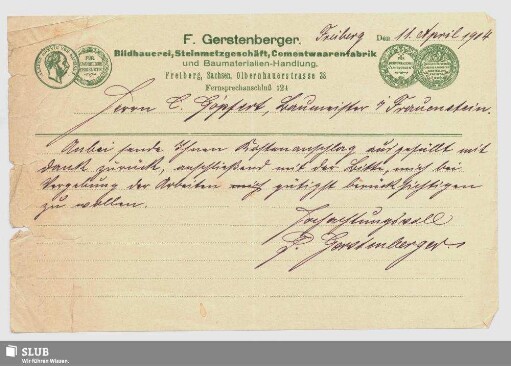 F. Gerstenberger.
Bildhauerei, Steinmetzgeschäft, Cementwaarenfabrik
und Baumaterialien-Handlung.
Freiberg, Sachsen, Olbernhauerstrasse 28
Fernsprechanschluß 124
Freiberg Den 11. April 1904
Herrn C. Göpfert, Baumeister i/ Frauenstein.
Anbei sende Ihnen Kostenanschlag ausgefüllt mit
Dank zurück, anschließend mit der Bitte, mich bei
Vergebung der Arbeiten gütigst berücksichtigen
zu wollen.
Hochachtungsvoll
F. Gerstenberger.
SLUB
Wir führen Wissen.